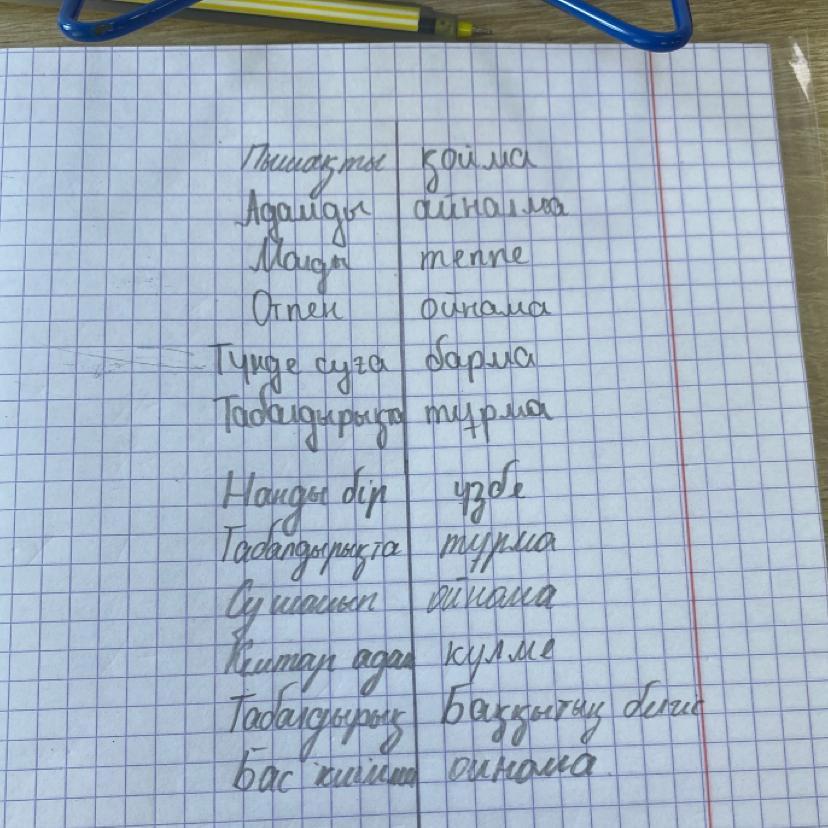 Пышақты қойма
Адамды айналма
Малды теппе
Отпен ойнама
Түнде суға барма
Табалдырықта тұрма
Нанды бір үзбе
Табалдырықта тұрма
Су шашып ойнама
күлме
Табалдырық Баққытың белгісі
Бас киіммен ойнама